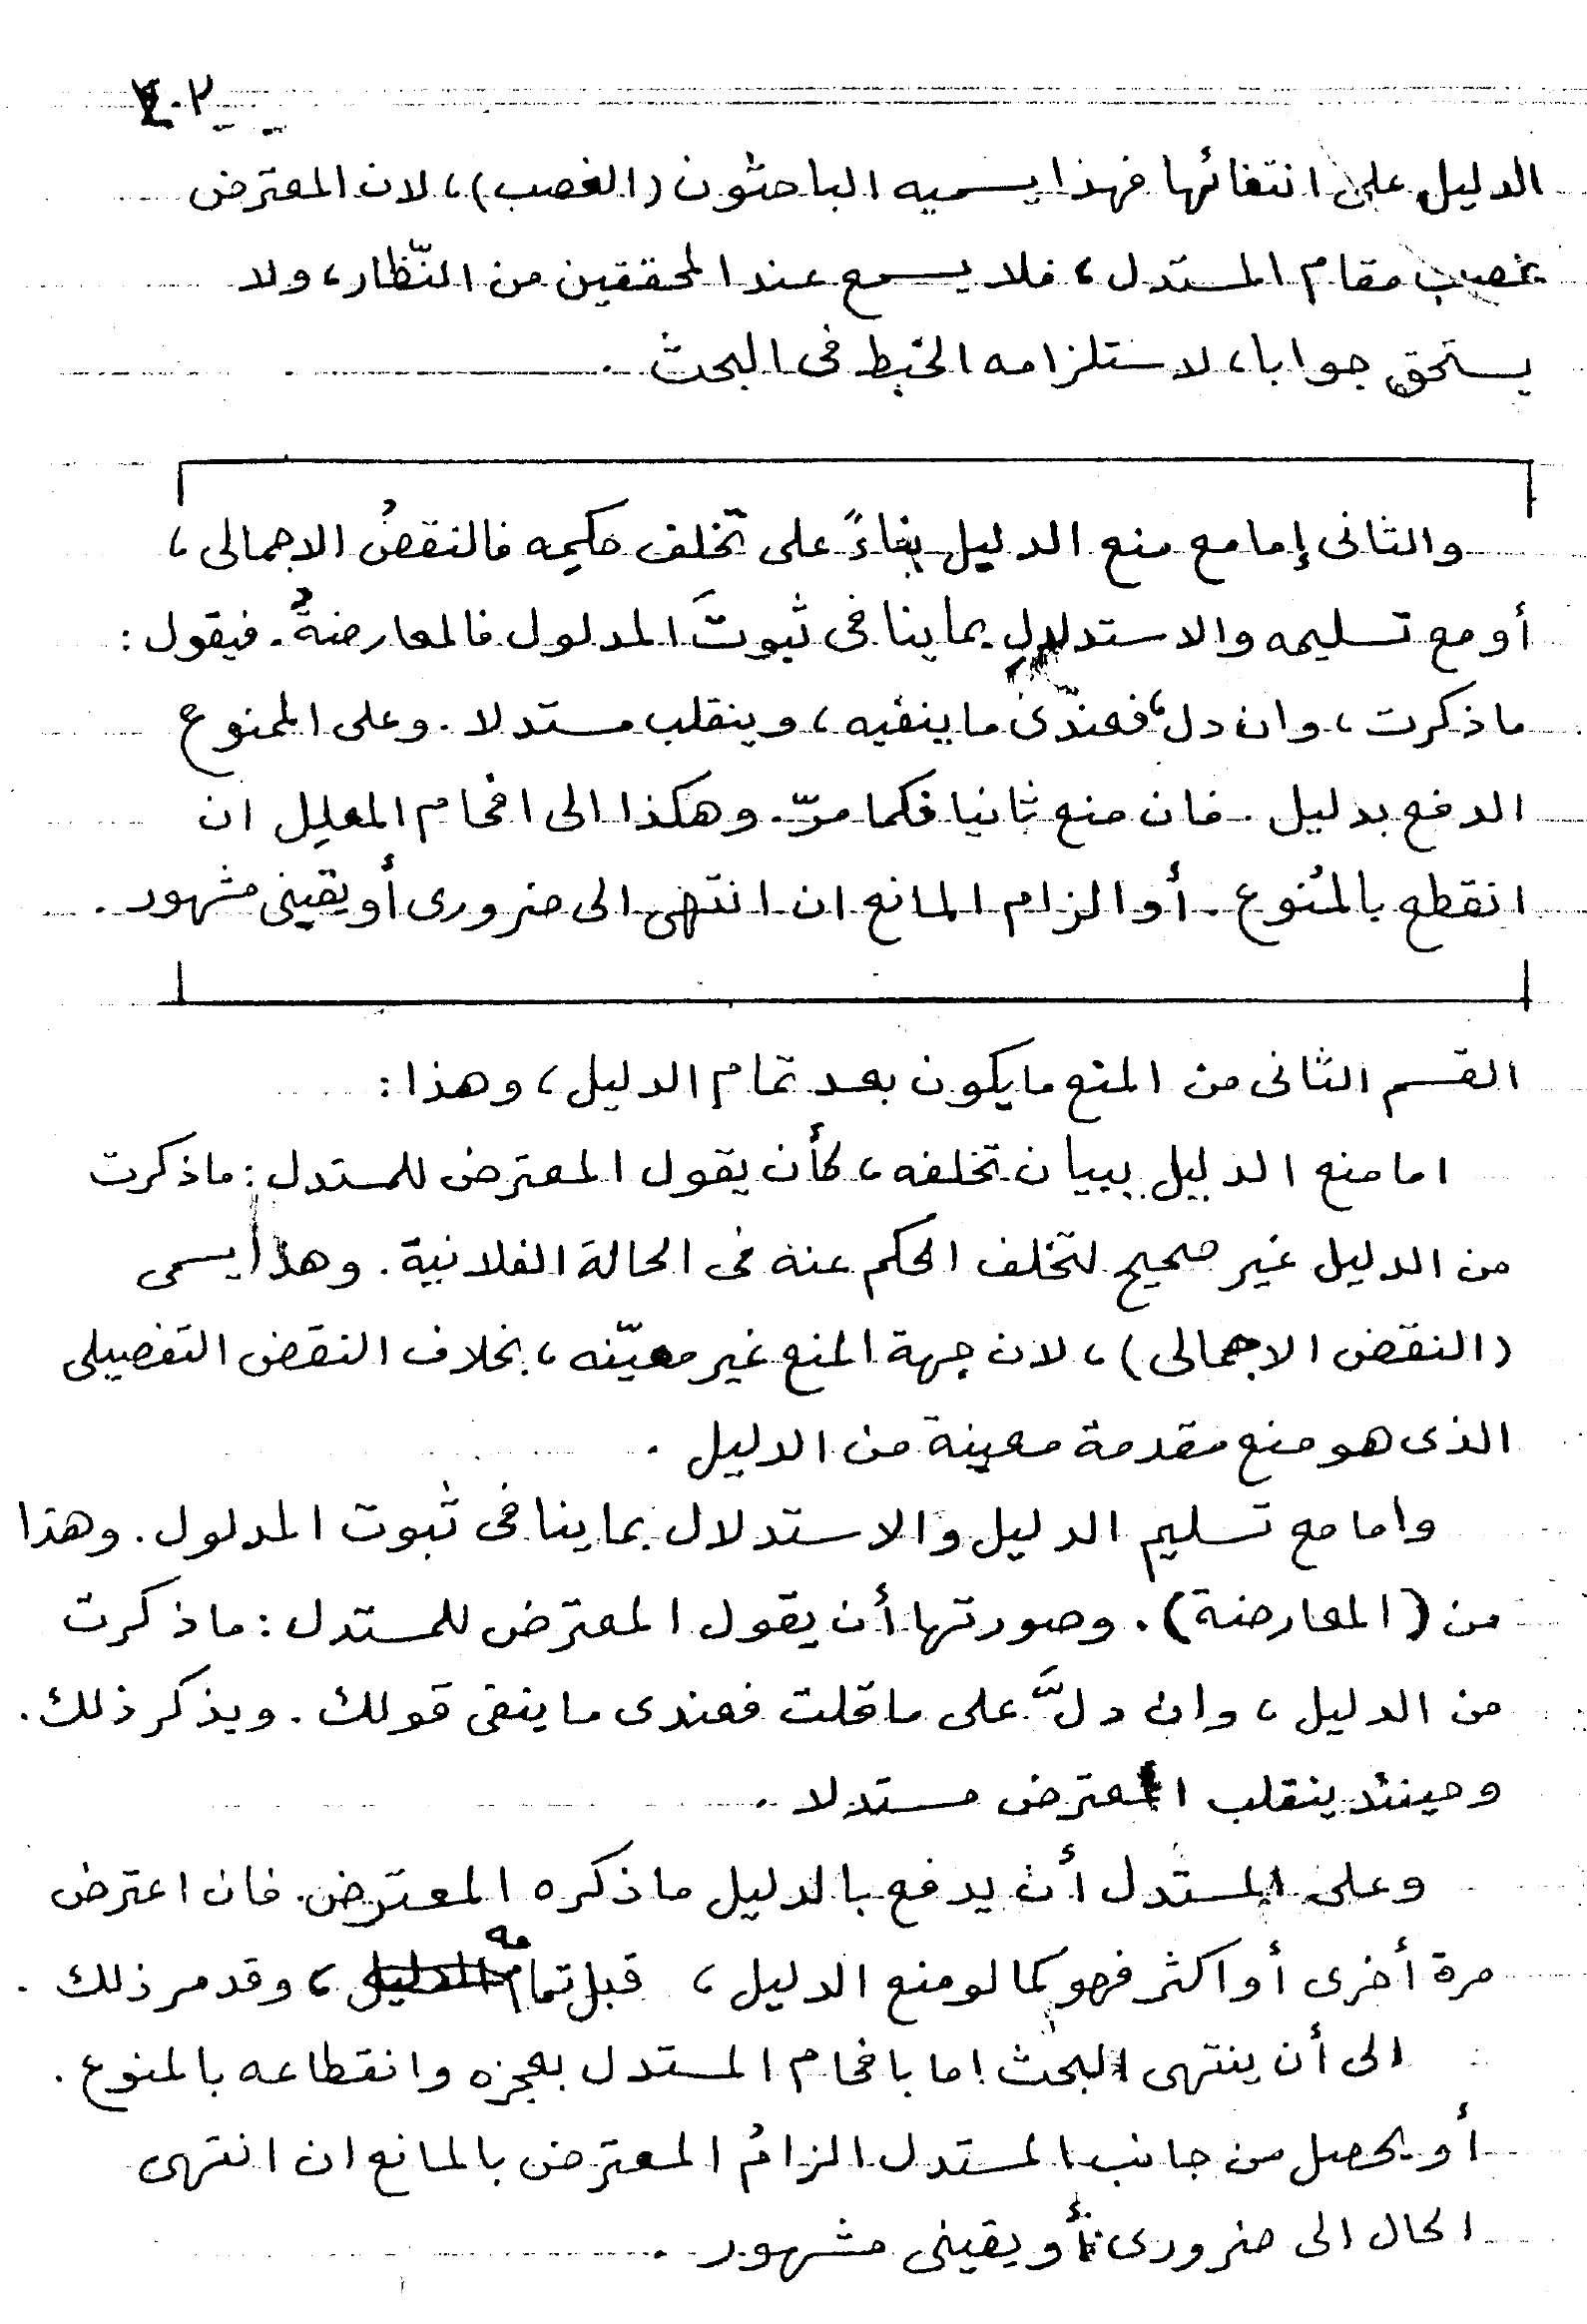 الدليل على انتفائها فهذا يسميه الباحثون (الغصب)، لان المعترض
يغصب مقام المستدل، فلا يسمع عند المحققين من النّظار، ولا
يستحق جوابا، لاستلزامه الخبط فى البحث .
والثانى إما مع منع الدليل بناءً على تخلف حكمه فالنقضُ الاجمالى،
أو مع تسليمه والاستدلال بما ينافى ثبوتَ المدلول فالمعارضةُ. فيقول :
ما ذكرت، وان دل، فعندى ما ينفيه، وينقلب مستدلا. وعلى الممنوع
الدفع بدليل. فان منع ثانيا فكما مرّ. وهكذا الى افحام المعلِل ان
انقطع بالمُنوع. أو الزام المانع ان انتهى الى ضرورى أو يقينى مشهور.
القسم الثانى من المنع ما يكون بعد تمام الدليل، وهذا :
اما منع الدليل ببيان تخلفه، كأن يقول المعترض للمستدل : ما ذكرت
من الدليل غير صحيح لتخلف الحكم عنه فى الحالة الفلانية. وهذا يسمى
(النقض الاجمالى)، لان جهة المنع غير معيّنه، بخلاف النقض التفصيلى
الذى هو منع مقدمة معينة من الدليل .
واما مع تسليم الدليل والاستدلال بما ينافى ثبوت المدلول. وهذا
من (المعارضة). وصورتها أن يقول المعترض للمستدل : ما ذكرت
من الدليل، وان دلَّ على ما قلت فعندى ما ينفى قولك. ويذكر ذلك.
وحينئذ ينقلب المعترض مستدلا .
وعلى المستدل أن يدفع بالدليل ما ذكره المعترض. فان اعترض
مرة أخرى أو اكثر فهو كما لو منع الدليل، قبل تمامه، وقد مر ذلك .
الى أن ينتهى البحث اما بافحام المستدل بعجزه وانقطاعه بالمنوع.
أو يحصل من جانب المستدل الزامُ المعترض بالمانع ان انتهى
الحال الى ضرورى أو يقينى مشهور .